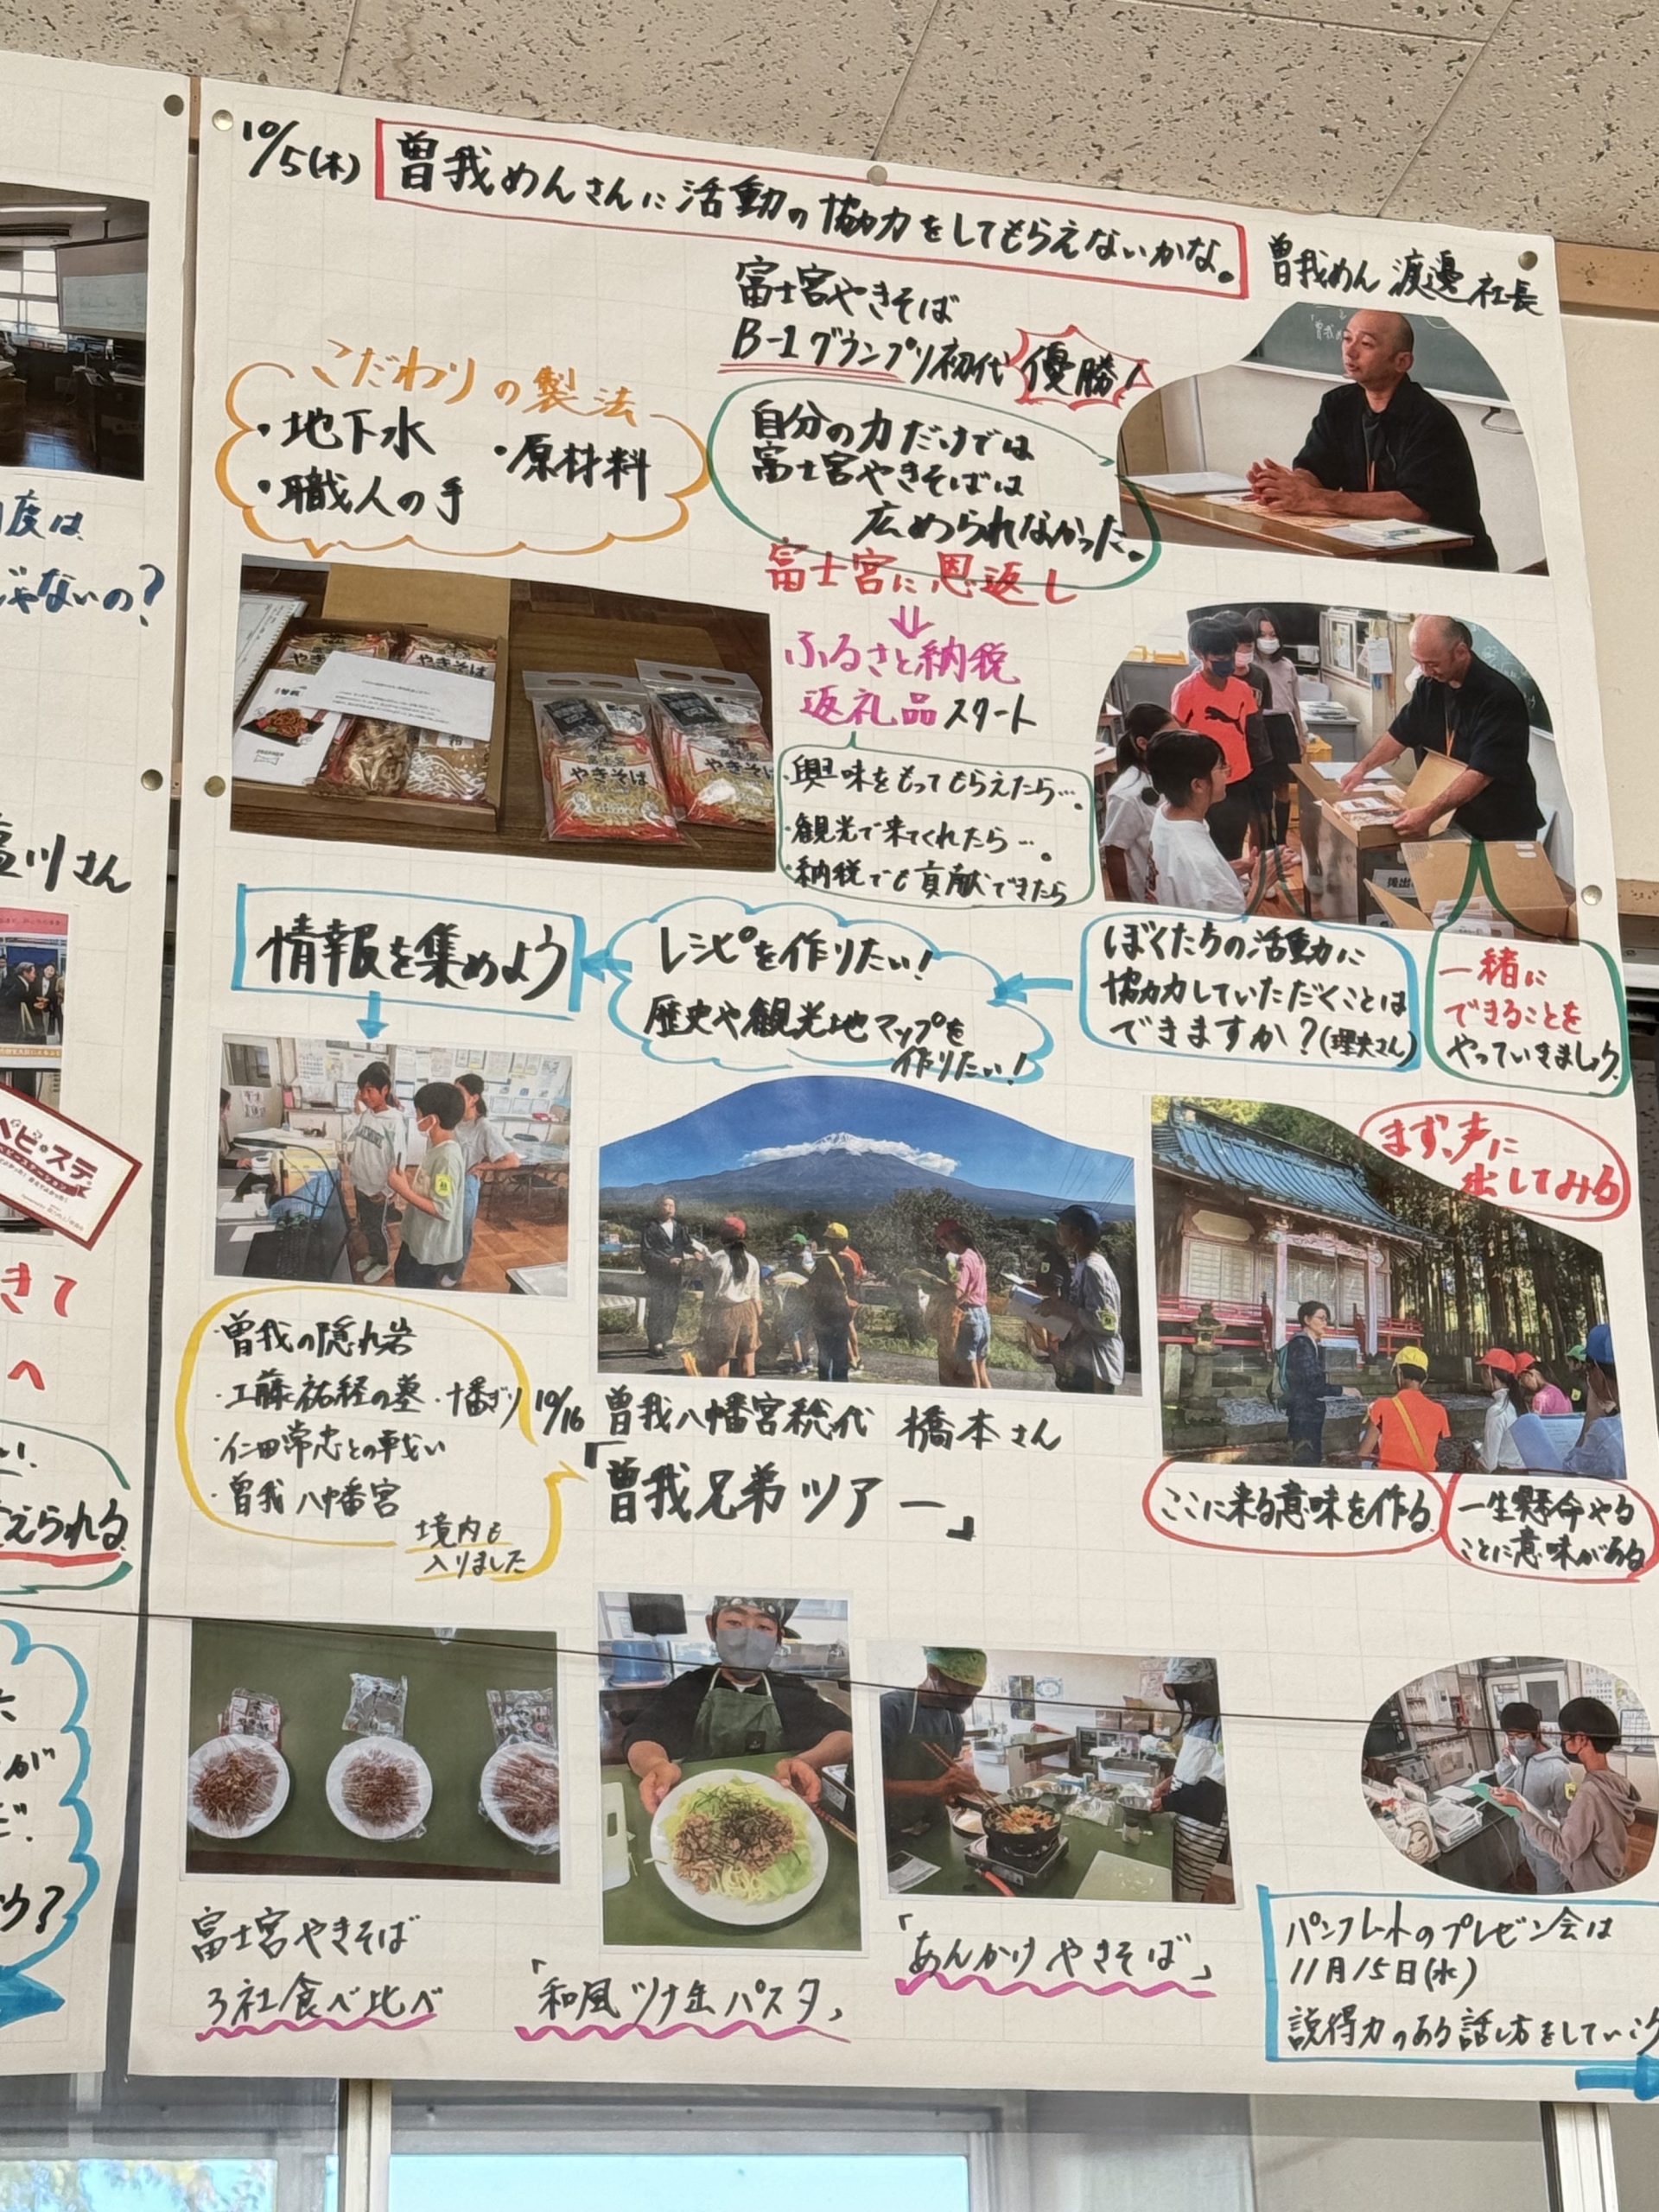 10/5(木)
曽我めんさんに活動の協力をしてもらえないかな。
曽我めん 渡邊社長
富士宮やきそば
B-1グランプリ初代優勝!
こだわりの製法
・地下水
・原材料
・職人の手
自分の力だけでは
富士宮やきそばは
広められなかった。
富士宮に恩返し
ふるさと納税
返礼品スタート
・興味をもってもらえたら…。
・観光で来てくれたら…。
・納税でも貢献できたら
やきそば
やきそば
富士宮
やきそば
情報を集めよう
レシピを作りたい!
歴史や観光地マップを
作りたい!
ぼくたちの活動に
協力していただくことは
できますか?
一緒に
できることを
やっていきましょう
まず、声に
出してみる
・曽我の隠れ岩
・工藤祐経の墓
・十番ぎり
・仁田常忠との戦い
・曽我八幡宮
境内も
入りました
10/16
曽我八幡宮総代 橋本さん
「曽我兄弟ツアー」
ここに来る意味を作る
一生懸命やる
ことに意味がある
富士宮やきそば
3社食べ比べ
「和風ツナ缶パスタ」
「あんかけやきそば」
パンフレットのプレゼン会は
11月15日(水)
説得力のある話し方をしていこう
度は
じゃないの?
川さん
ベビ・ステ
きて
へ
えられる
が